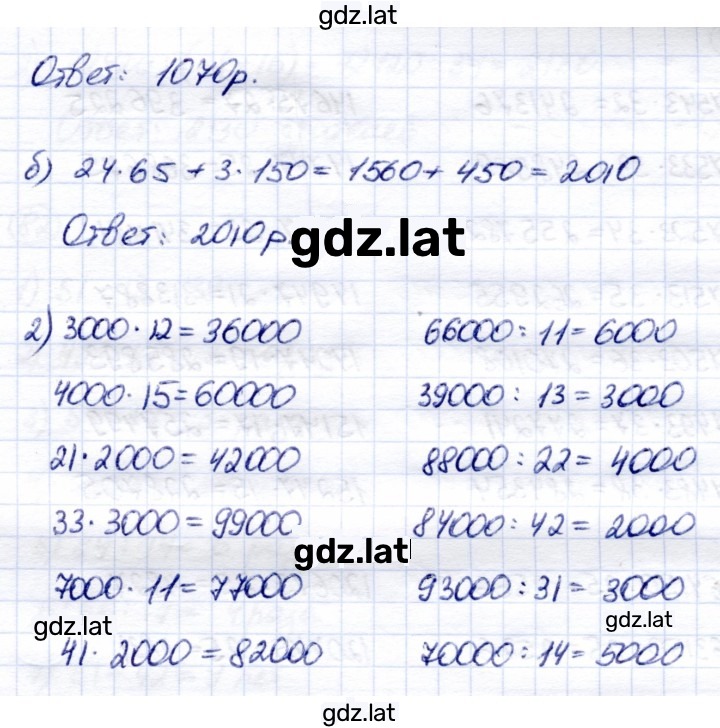 gdz.lat
Ответ: 1070р.
б) 24·65 + 3·150 = 1560 + 450 = 2010
Ответ: 2010р.
gdz.lat
2) 3000·12 = 36000 66000 : 11 = 6000
4000·15 = 60000 39000 : 13 = 3000
21·2000 = 42000 88000 : 22 = 4000
33·3000 = 99000 84000 : 42 = 2000
gdz.lat
7000·11 = 77000 93000 : 31 = 3000
gdz.lat gdz.lat
41·2000 = 82000 70000 : 14 = 5000
gdz.lat